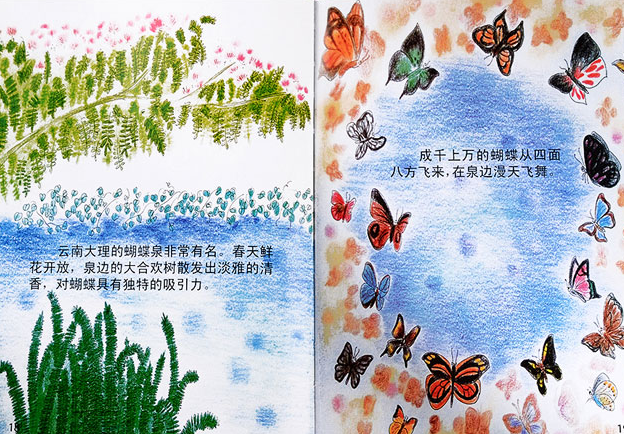 云南大理的蝴蝶泉非常有名。春天鲜
花开放，泉边的大合欢树散发出淡雅的清
香，对蝴蝶具有独特的吸引力。
成千上万的蝴蝶从四面
八方飞来，在泉边漫天飞舞。